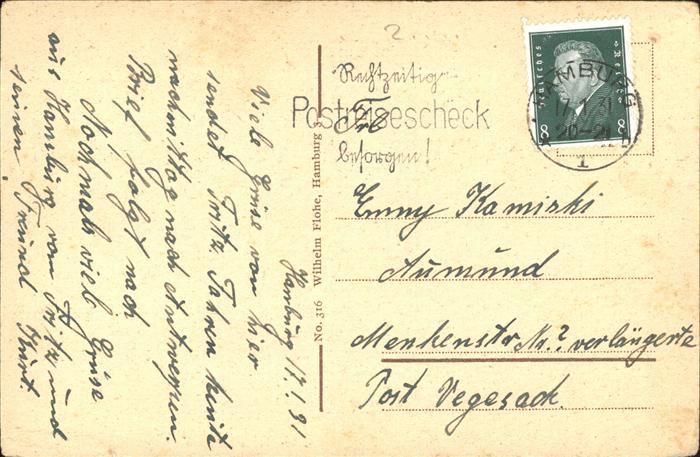 Hamburg 17.1.31
Viele Grüse von hier
sendet Fritz. Fahren heute
nachmittag nach Antwerpen.
Brief folgt nach
Nochmals viel Grüse
aus Hamburg vom Fritz und
seinen Freund Kurt.
No. 316 Wilhelm Flohe, Hamburg 3
Rechtzeitig
Postreisescheck
besorgen!
Deutsches Reich
8 8
HAMBURG
17. 31
20-21
1
Frl
Emmy Kamizki
Aumund
Menkenstr Nr? verlängerte
Post Vegesack.